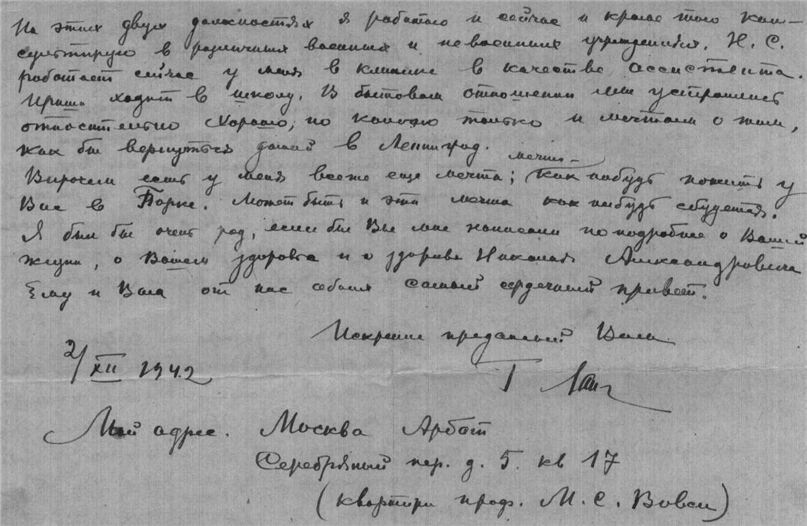 На этих двух должностях я работаю и сейчас и кроме того кон-
сультирую в различных военных и невоенных учреждениях. Н. С.
работает сейчас у меня в клинике в качестве ассистента.
Ириша ходит в школу. В бытовом отношении мы устроились
относительно хорошо, но конечно только и мечтаем о том,
как бы вернуться домой в Ленинград.
мечта –
Впрочем есть у меня все же еще мечта; как нибудь пожить у
Вас в Борке. Может быть и эта мечта как нибудь сбудется.
Я был бы очень рад, если бы Вы мне написали поподробнее о Вашей
жизни, о Вашем здоровье и о здоровье Николая Александровича
Ему и Вам от нас обоих самый сердечный привет.
Искренне преданный Вам
2/XII 1942
Г Ланг
Мой адрес. Москва Арбат
Серебряный пер. д. 5. кв 17
(квартира проф. М. С. Вовси)